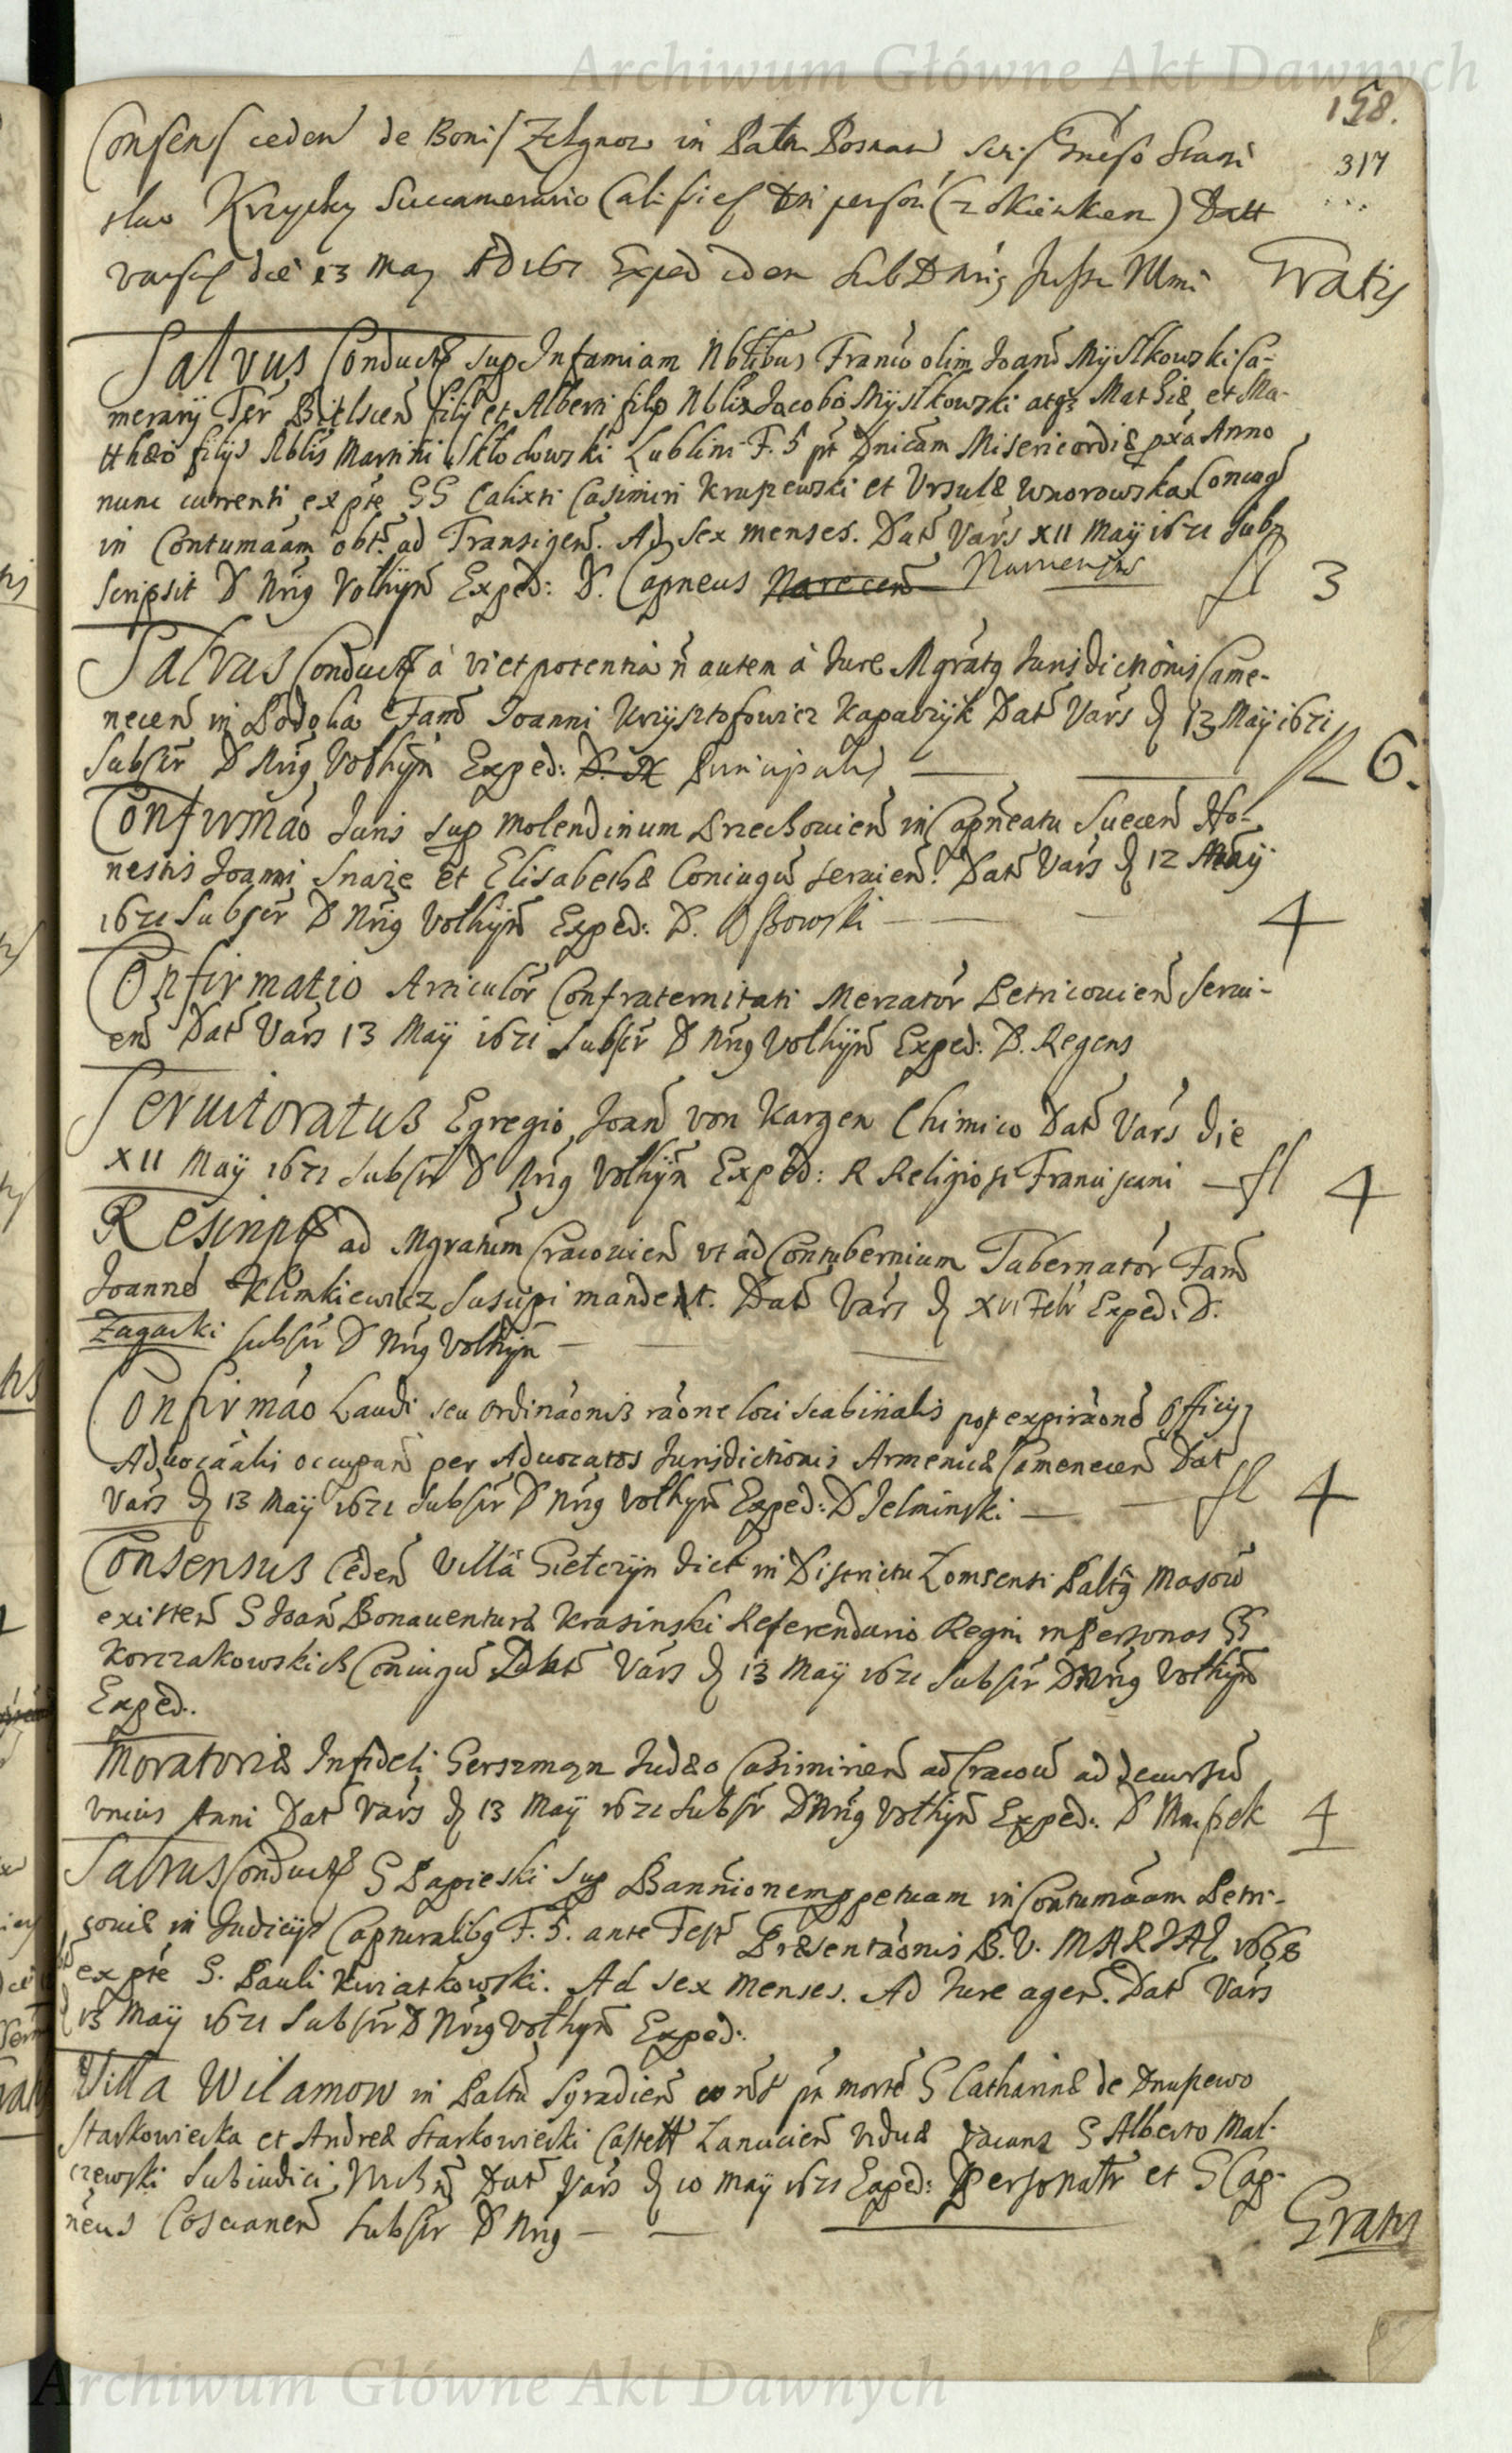 Archiwum Główne Akt Dawnych
158.
317
Consens ceden de Bonis Zelgnow in Patu Posnan
slao Krzycky Succamerario Calisien Dni person Datt
die 13 May AD 167 Exped idem Sub D Nrig Gratis
Salvus Conduct sup Infamiam Nblibus Franco olim Joan Myslkowski Ca-
merarij Ter Bielscen filij et Alberti filio Nblis Jacobi Myslkowski atq Mathiæ et Ma-
tthæo filijs Nblis Martini Skłodowski Lublini F. 5 pt Dnicam Misericordiæ pxa Anno
nunc currenti ex pte GG Calixti Casimiri Krupewski et Ursulæ Wnorowska Coniug
in Contumaam obt. ad Transigen. Ad sex menses. Dat Vars XII Maij 1671 Sub
scripsit D Nrig Volhyn Exped: D. Capneus fl 3
Salvus Conduct à vi et potentia n autem à Jure Mgratg Jurisdictionis Came-
necen in Podolia Fam Joanni Krzysztofowicz Kapadzyk Dat Vars d 13 Maij 1671
Subscr D Nrig Volhyn Exped: Principalis fl 6.
Confirmao Juris sup molendinum Brzechowien in Capneatu Suecen Ho-
nestis Joanni Snaze et Elisabethæ Coniugu seruien. Dat Vars d 12 Maij
1671 Subscr D Nrig Volhyn Exped: D. Ossowski 4
Confirmatio Articulor Confraternitati Mercator Petricouien Serui-
en Dat Vars 13 Maij 1671 Subscr D Nrig Volhyn Exped: D. Regens
Seruitoratus Egregio Joan von Kargen Chimico Dat Vars die
XII Maij 1671 Subscr D Nrig Volhyn Exped: R Religiosi Franciscani fl 4
Rescript ad Mgratum Cracouien ut ad Contubernium Tabernator Fam
Joanne Klimkiewicz Suscipi mandent. Dat Vars d XVI Febr Exped: D.
Zagacki subscr D Nrig Volhyn
Confirmao Laudi seu ordinaonis raone loci scabinalis post expiraone Officij
Aduocaalis occupan per Aduocatos Jurisdictionis Armenicæ Camenecen Dat
Vars d 13 Maij 1671 Subscr D Nrig Volhyn Exped: D Jelminski fl 4
Consensus Ceden Villa Giełczyn dict in Districtu Lomsensi Paltg Masow
existen G Joan Bonauentura Krasinski Referendario Regni in Personas GG
Korczakowskich Coniugu Dat Vars d 13 Maij 1671 Subscr D Nrig Volhyn
Exped.
Moratoriæ Infideli Gerszman Judæo Casimirien ad Cracou ad decursu
unius Anni Dat Vars d 13 Maij 1671 Subscr D Nrig Volhyn Exped: D 4
Salvus Conduct G Lapieski sup Bannionem ppetuam in Contumaam Petri-
couiæ in Judicijs Capturalibg F. 5. ante Fest Præsentaonis B. V. MARIAE 1668
ex pte G. Pauli Kwiatkowski. Ad sex menses. Ad Jure agen. Dat Vars
d 13 Maij 1671 Subscr D Nrig Volhyn Exped:
Villa Wilamow in Paltu Syradien pt morte G Catharinæ de Drupewo
Starkowiecka et Andreæ Starkowiecki Castell Lanucien viduæ vacans G Alberto Mal-
czewski Subiudici Dat Vars d 10 Maij 1671 Exped: Personatr et G Cap-
neus Coscianen Subscr D Nrig Gratis
Archiwum Główne Akt Dawnych